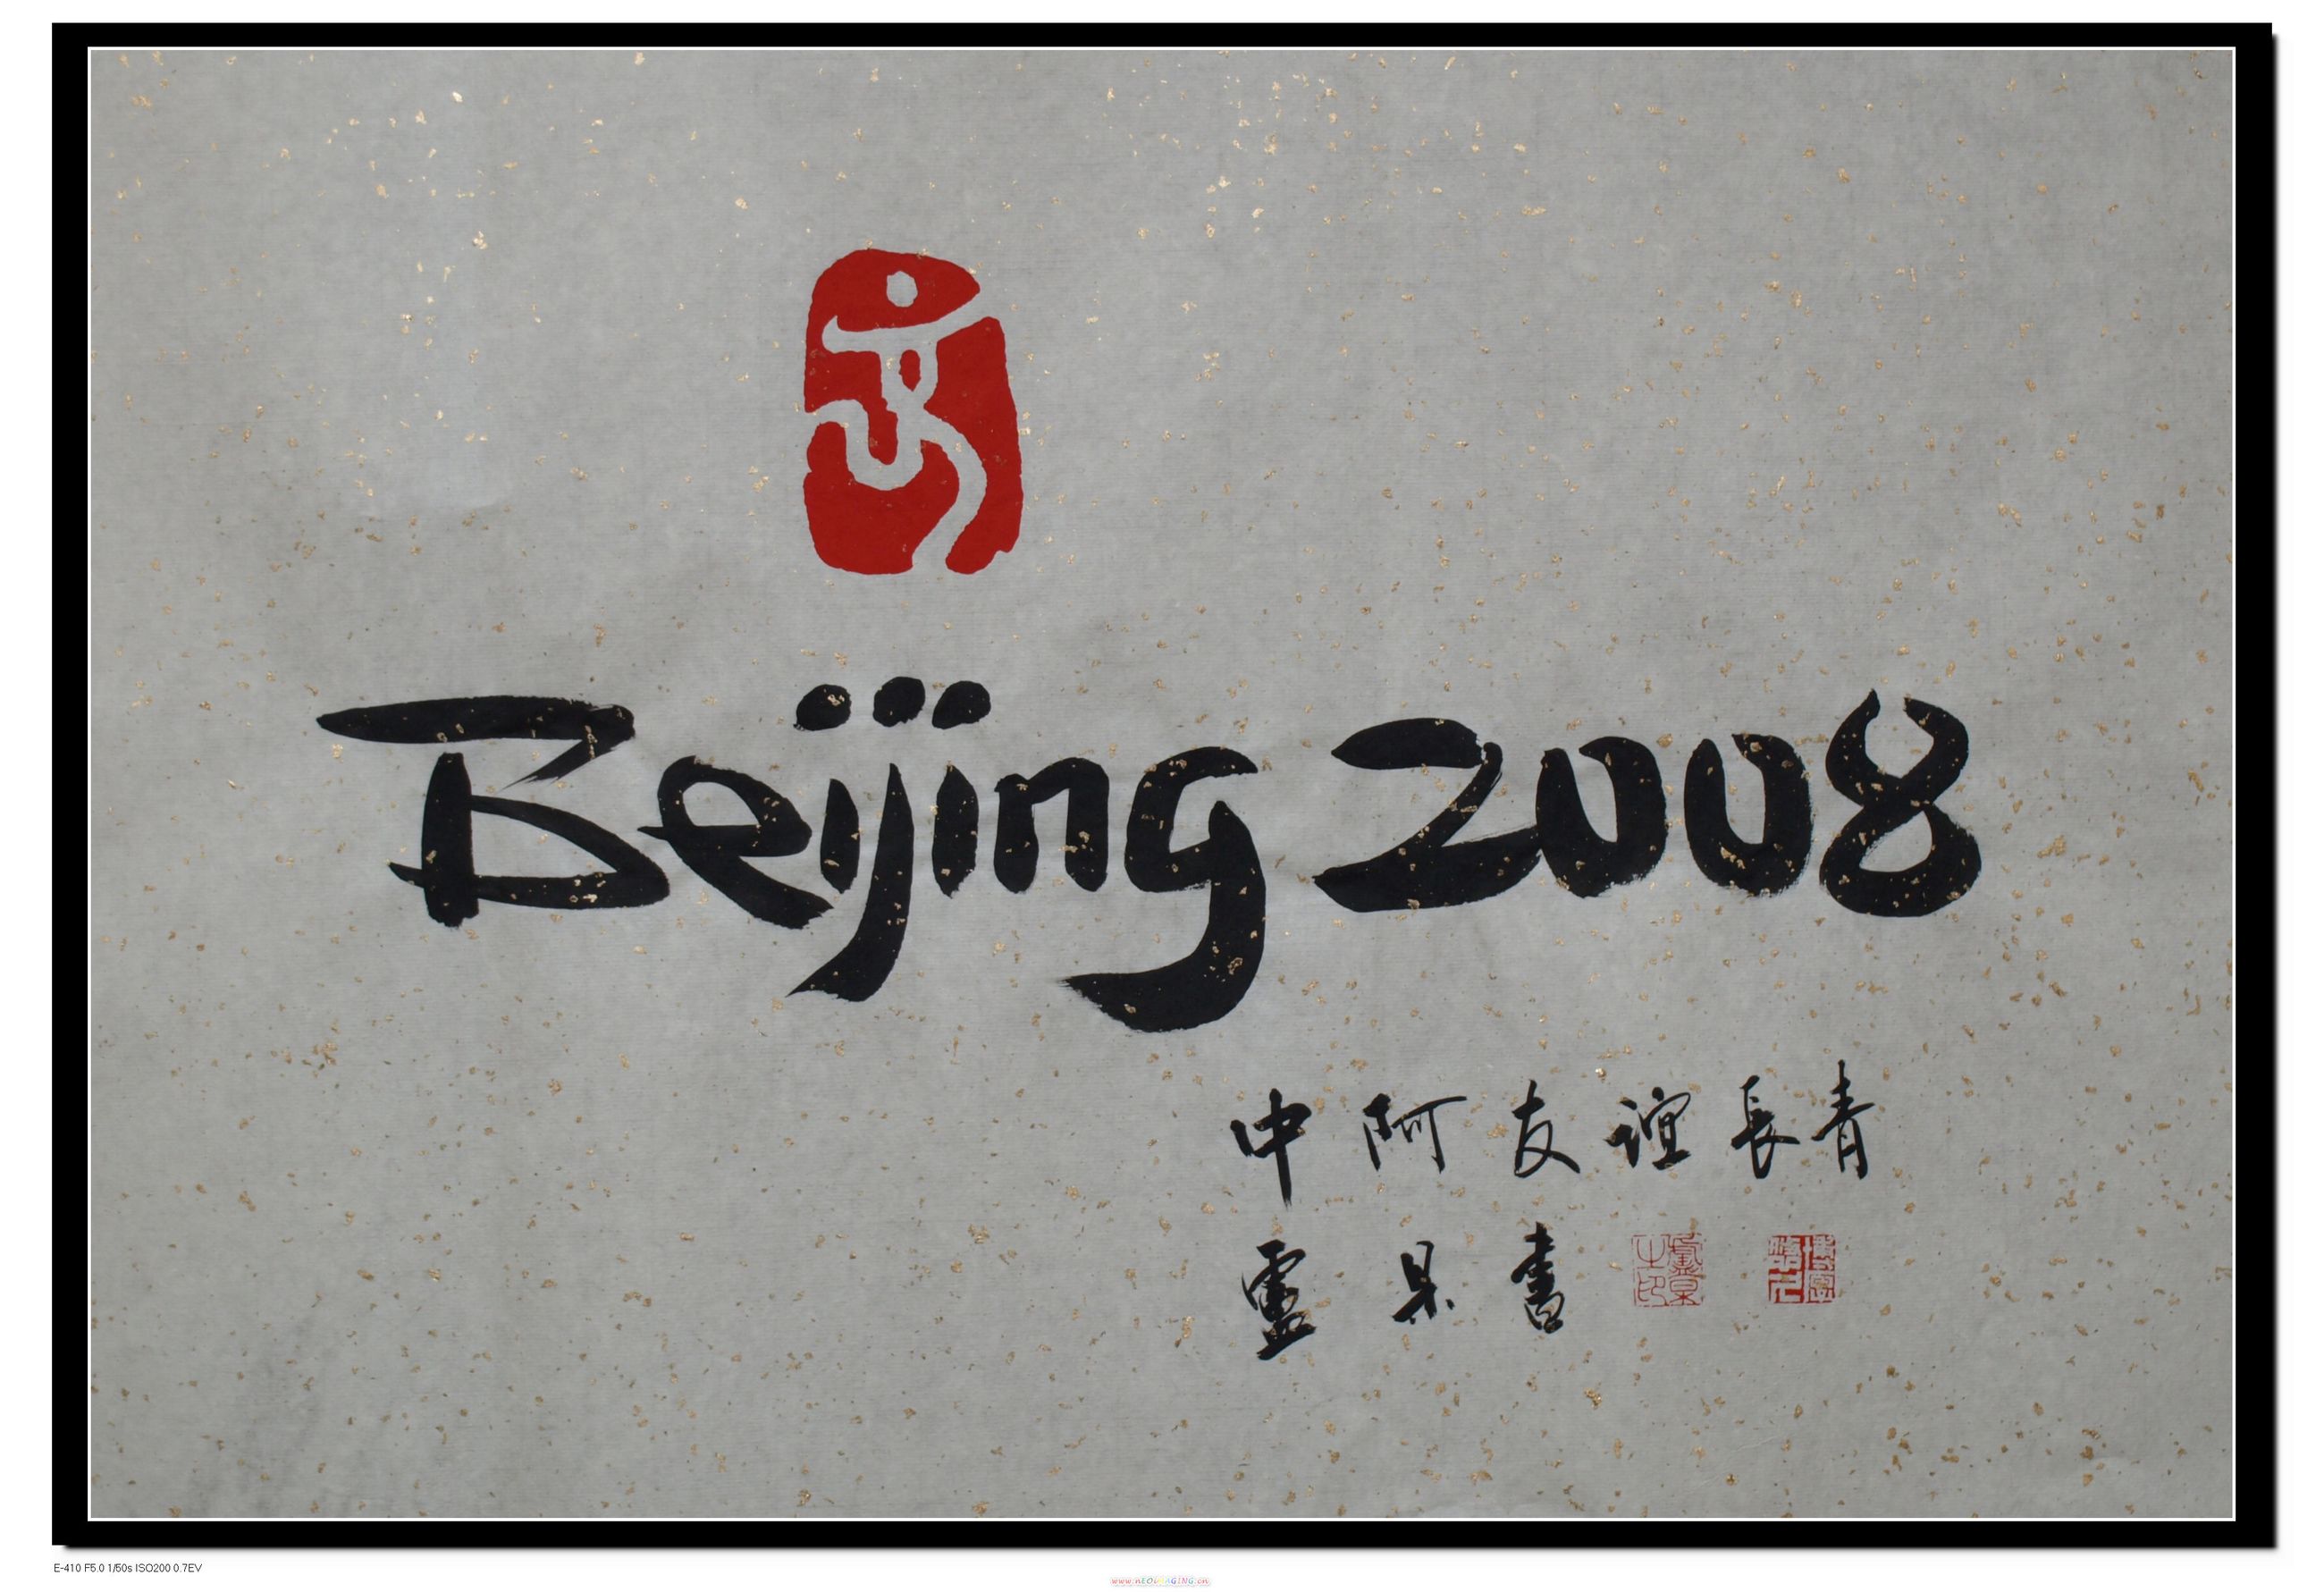 Beijing 2008
中阿友谊長青
靈杲書
E-410 F5.0 1/50s ISO200 0.7EV
www.nEOiMAGING.cn